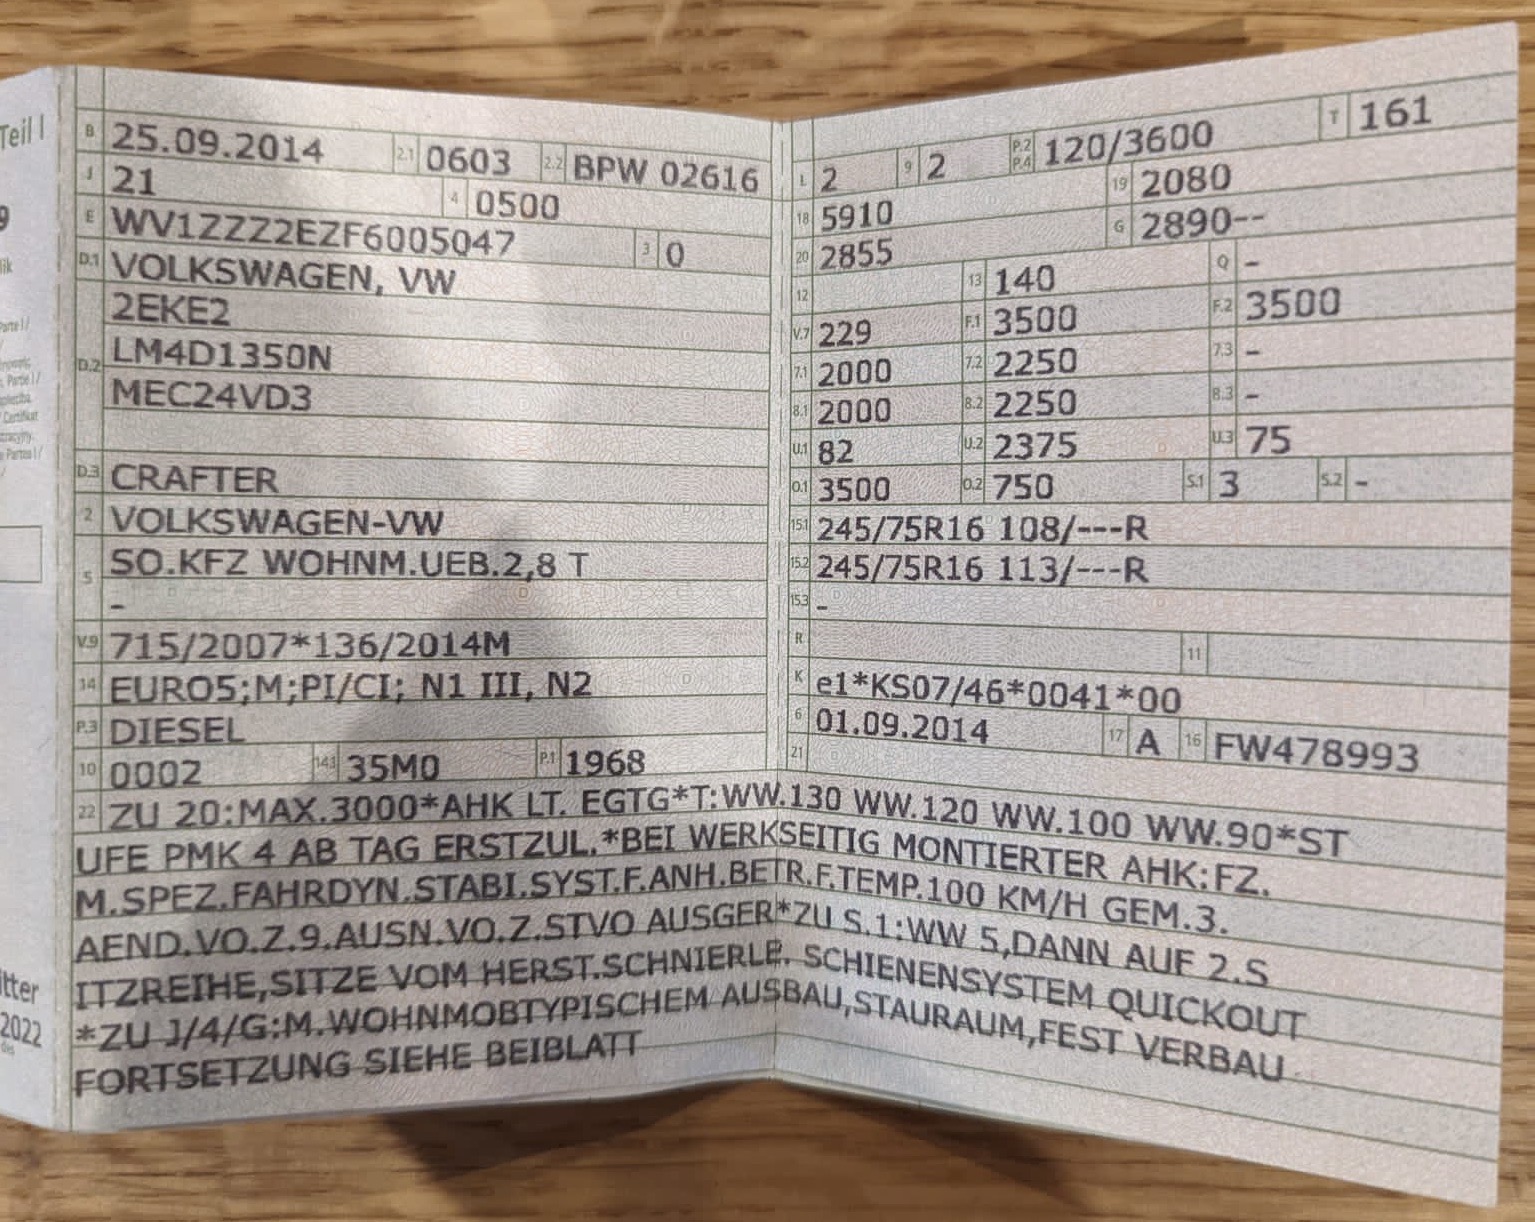 Teil I
B 25.09.2014 2.1 0603 2.2 BPW 02616
J 21 4 0500
E WV1ZZZ2EZF6005047 3 0
D.1 VOLKSWAGEN, VW
2EKE2
D.2 LM4D1350N
MEC24VD3
D.3 CRAFTER
2 VOLKSWAGEN-VW
5 SO.KFZ WOHNM.UEB.2,8 T
-
V.9 715/2007*136/2014M
14 EURO5;M;PI/CI; N1 III, N2
P.3 DIESEL
10 0002 14.1 35M0 P.1 1968
L 2 9 2 P.2 P.4 120/3600 T 161
18 5910 19 2080
20 2855 G 2890--
12 13 140 Q -
V.7 229 F.1 3500 F.2 3500
7.1 2000 7.2 2250 7.3 -
8.1 2000 8.2 2250 8.3 -
U.1 82 U.2 2375 U.3 75
O.1 3500 O.2 750 S.1 3 S.2 -
15.1 245/75R16 108/---R
15.2 245/75R16 113/---R
15.3 -
R 11
K e1*KS07/46*0041*00
6 01.09.2014 17 A 16 FW478993
21
22 ZU 20:MAX.3000*AHK LT. EGTG*T:WW.130 WW.120 WW.100 WW.90*ST
UFE PMK 4 AB TAG ERSTZUL.*BEI WERKSEITIG MONTIERTER AHK:FZ.
M.SPEZ.FAHRDYN.STABI.SYST.F.ANH.BETR.F.TEMP.100 KM/H GEM.3.
AEND.VO.Z.9.AUSN.VO.Z.STVO AUSGER*ZU S.1:WW 5,DANN AUF 2.S
ITZREIHE,SITZE VOM HERST.SCHNIERLE. SCHIENENSYSTEM QUICKOUT
*ZU J/4/G:M.WOHNMOBTYPISCHEM AUSBAU,STAURAUM,FEST VERBAU
FORTSETZUNG SIEHE BEIBLATT
itter
2022